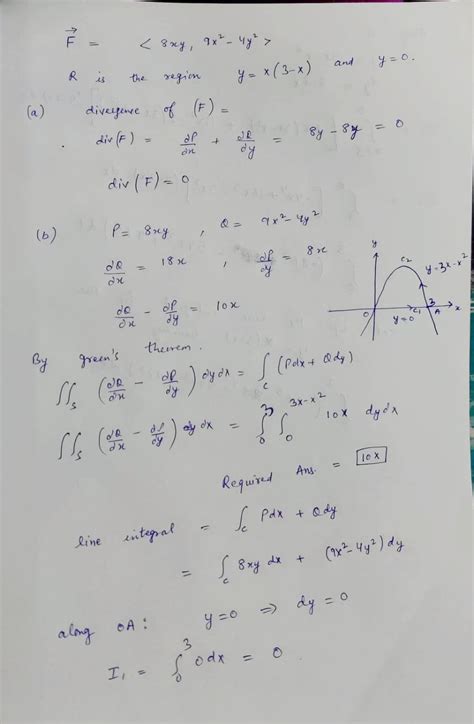 F⃗ = < 8xy, 9x² - 4y² >
R is the region y = x(3-x) and y=0.
(a) divergence of (F) =
div(F) = ∂P/∂x + ∂Q/∂y = 8y - 8y = 0
div(F) = 0
(b) P = 8xy , Q = 9x² - 4y²
∂Q/∂x = 18x , ∂P/∂y = 8x
∂Q/∂x - ∂P/∂y = 10x
y
C2
y=3x-x²
O
y=0
C1
3
A
x
By green's theorem.
∬_S (∂Q/∂x - ∂P/∂y) dydx = ∫_C (Pdx + Qdy)
∬_S (∂Q/∂x - ∂P/∂y) dydx = ∫_0^3 ∫_0^{3x-x²} 10x dydx
Required Ans. = 10x
line integral = ∫_C Pdx + Qdy
= ∫_C 8xy dx + (9x² - 4y²) dy
along OA: y=0 ⇒ dy = 0
I₁ = ∫_0^3 0dx = 0.